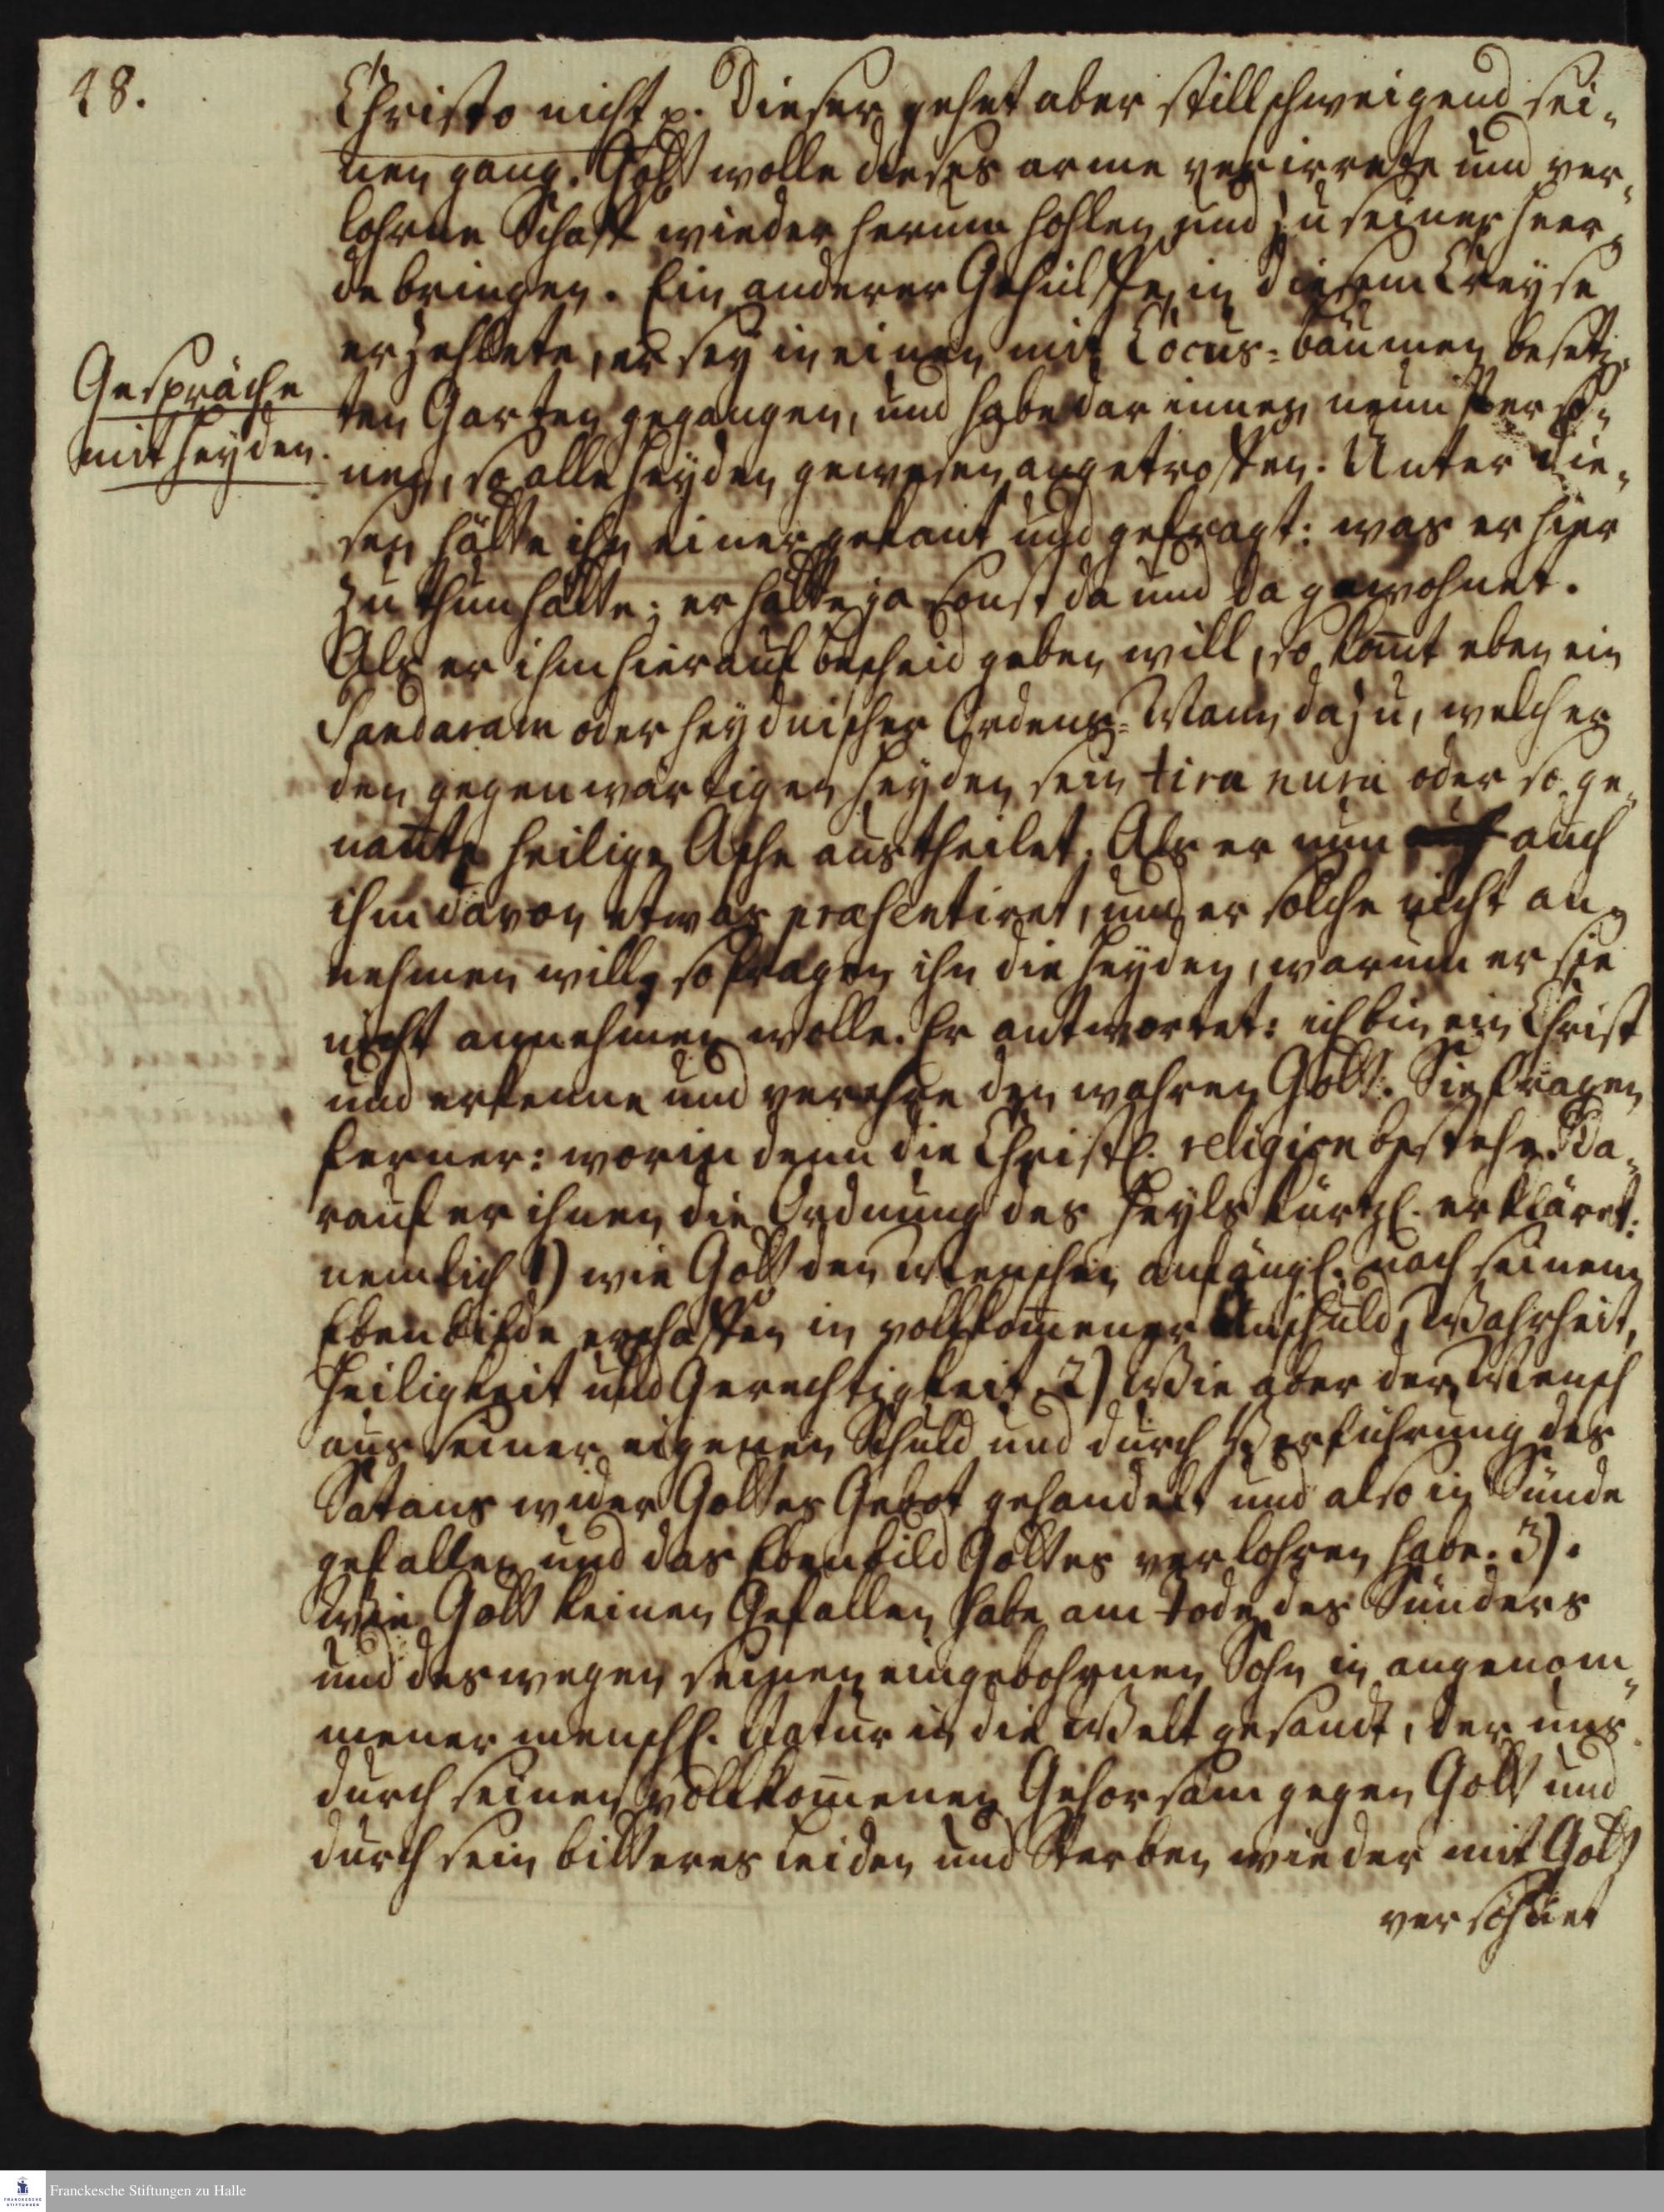 18.
Christo nicht p. Dieser gehet aber stillschweigend sei-
nen gang. Gott wolle dieses arme verirrete und ver-
lohrne Schaff wieder herum hohlen und zu seiner Heer-
de bringen. Ein anderer Gehülffe in diesem Creyse
erzehlete, er sey in einen mit Cocus-bäumen besetz-
ten Garten gegangen, und habe darinnen neun Perso-
nen, so alle Heyden gewesen angetroffen. Unter die-
sen hätte ihn einer gekant und gefragt: was er hier
zu thun hätte; er hätte ja sonst da und da gewohnet.
Als er ihm hierauf bescheid geben will, so kom̄t eben ein
Pandaram oder heydnischer Ordens-Mann dazu, welcher
den gegenwärtigen Heyden sein tiru nuru oder so ge-
nante heilige Asche austheilet. Als er nun auch
ihm davon etwas præsentiret, und er solche nicht an-
nehmen will, so fragen ihn die Heyden, warum er sie
nicht annehmen wolle. Er antwortet: ich bin ein Christ
und erkenne und verehre den wahren Gott. Sie fragen
ferner: worin denn die Christl. religion bestehe. Da-
rauf er ihnen die Ordnung des Heyls kürtzl. erkläret:
nemlich 1) wie Gott den Menschen anfängl. nach seinem
Ebenbilde erschaffen in vollkom̄ener Unschuld, Wahrheit,
Heiligkeit und Gerechtigkeit. 2) Wie aber der Mensch
aus seiner eigenen Schuld und durch Verführung des
Satans wider Gottes Gebot gehandelt und also in Sünde
gefallen und das Ebenbild Gottes verlohren habe. 3).
Wie Gott keinen Gefallen habe am tode des Sünders
und deswegen seinen eingebohrnen Sohn in angenom-
mener menschl. Natur in die Welt gesandt, der uns
durch seinen vollkom̄enen Gehorsam gegen Gott und
durch sein bitteres Leiden und Sterben wieder mit Gott
versöhnet
Gespräche
mit Heyden.
Franckesche Stiftungen zu Halle
FRANCKESCHE
STIFTUNGEN